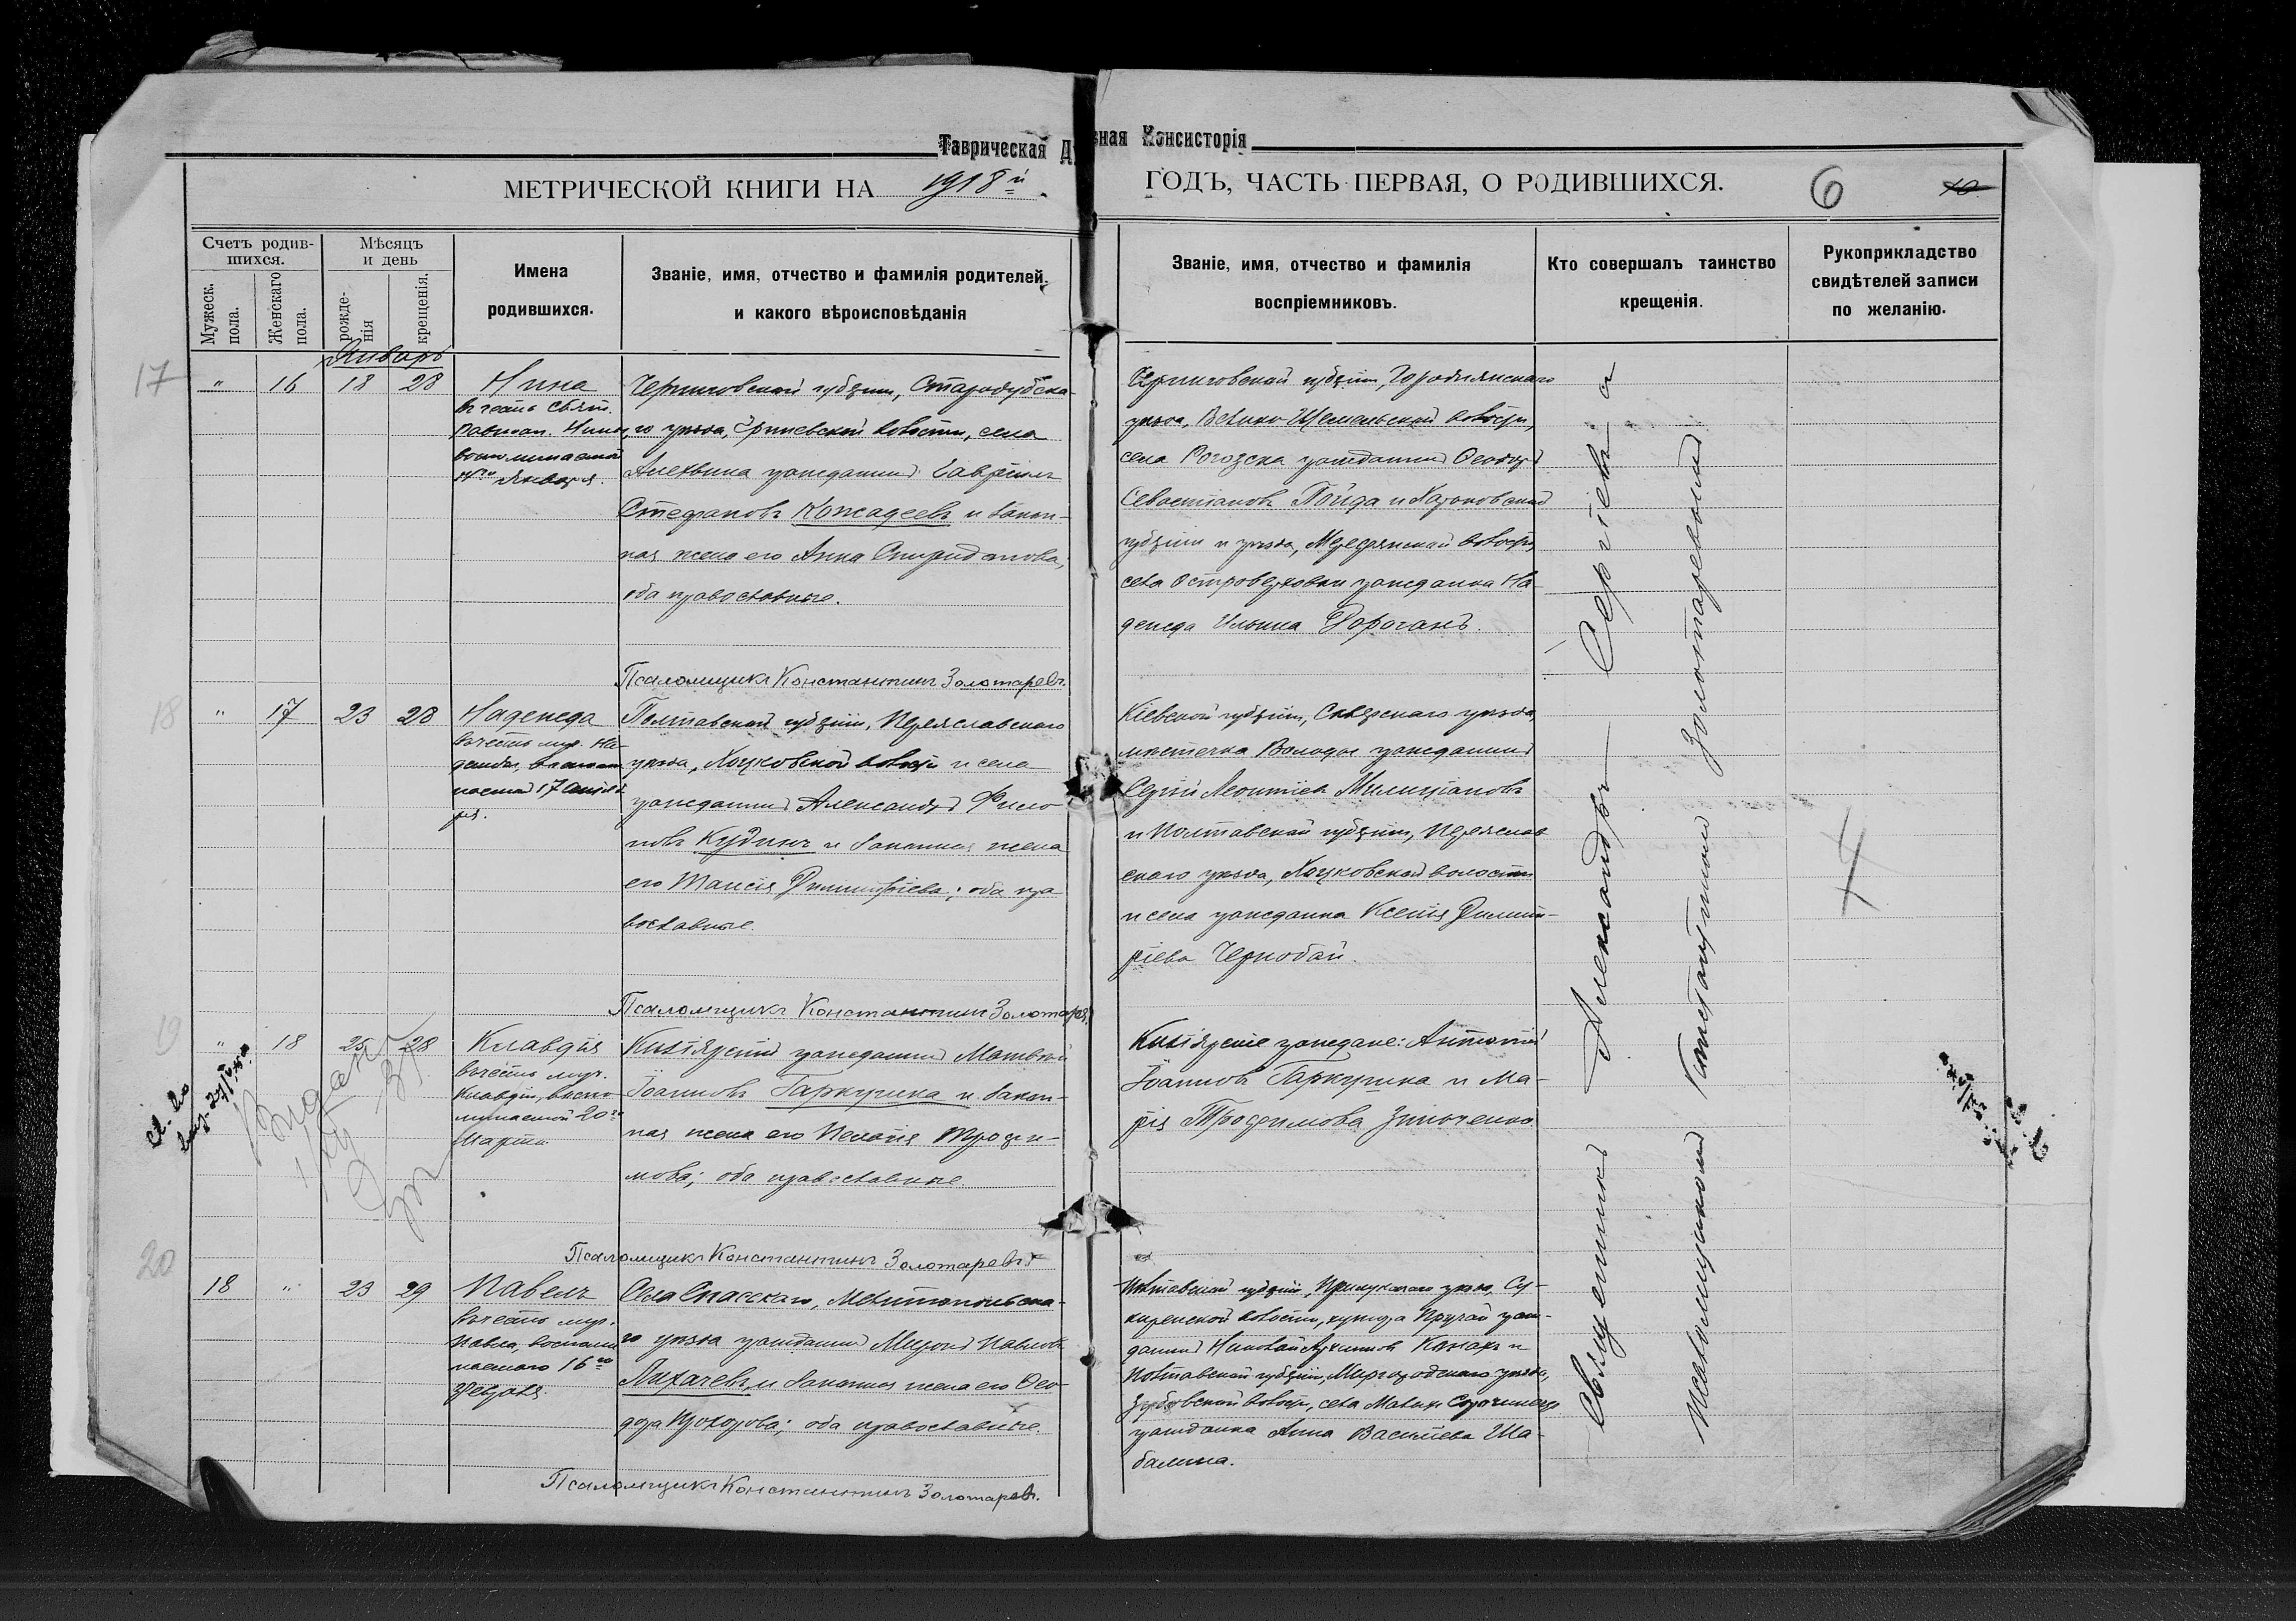 Таврическая Ду
вная Консисторія
МЕТРИЧЕСКОЙ КНИГИ НА 1918й
ГОДЪ, ЧАСТЬ ПЕРВАЯ, О РОДИВШИХСЯ.
6
10
Счетъ родив-
шихся.
Мужеск.
пола.
Женскаго
пола.
Мѣсяцъ
и день
рожде-
нія
крещенія.
Имена
родившихся.
Званіе, имя, отчество и фамилія родителей,
и какого вѣроисповѣданія
Званіе, имя, отчество и фамилія
воспріемниковъ.
Кто совершалъ таинство
крещенія.
Рукоприкладство
свидѣтелей записи
по желанію.
Январь
17
" 16 18 28
Нина
въ честь свят.
равноап. Нины,
воспоминаемой
14го Января.
Черниговской губерніи, Стародубска-
го уѣзда, волости, села
гражданинъ Гавріилъ
Стефановъ Кожадеевъ и закон-
ная жена его Анна Спиридонова,
оба православные.
Псаломщикъ Константинъ Золотаревъ.
Черниговской губерніи, Городнянскаго
уѣзда, Велико-Щемельской волости,
села Рогозска гражданинъ Ѳеодоръ
Севастіановъ Пойда и Харьковской
губерніи и уѣзда, Мерефянской волости,
села Островерховки гражданка На-
дежда Ильина Дорогань.
18
" 17 23 28
Надежда
въ честь муч. На-
дежды, воспоми
наемой 17 Сентяб
ря.
Полтавской губерніи, Переяславскаго
уѣзда, Хоцковской волости и села
гражданинъ Александръ Фили
повъ Кудинъ и законная жена
его Таисія Димитріева; оба пра
вославные.
Псаломщикъ Константинъ Золотарев.
Кіевской губерніи, Сквирскаго уѣзда,
мѣстечка гражданинъ
Сергій Леонтіев
и Полтавской губерніи, Переяслав
скаго уѣзда, Хоцковской волости
и села гражданка Ксенія Димит-
ріева Чернобай.
19
" 18 25 28
Клавдія
въ честь муч.
Клавдіи, воспо
минаемой 20го
Марта
Кизіярскій гражданинъ Матвѣй
Іоанновъ Гаркушка и закон-
ная жена его Пелагія Трофи-
мова; оба православные
Псаломщикъ Константинъ Золотаревъ
Кизіярскіе граждане: Антоній
Іоанновъ Гаркушка и Ма-
рія Трофимова Зинченко.
20
18 " 23 29
Павелъ
въ честь муч.
Павла, воспоми
наемаго 16го
Февраля.
Села Спасскаго, Мелитопольска-
го уѣзда гражданинъ Миронъ Павловъ
Лихачевъ, и законная жена его Ѳео-
дора Прохорова; оба православные.
Псаломщикъ Константинъ Золотаревъ.
Полтавской губерніи, Прилукскаго уѣзда,
волости, хутора граж-
данинъ Николай и
Полтавской губерніи, Миргородскаго уѣзда,
волости, села Малыя Сорочинцы
гражданка Анна Василіева Ша-
балина.
Священникъ Александръ Сергіевъ съ
Псаломщикомъ Константиномъ Золотаревымъ